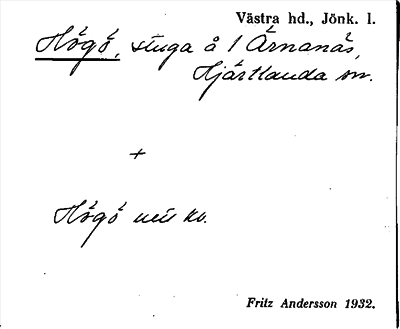 Västra hd., Jönk. l.
Högö, stuga å 1 Ärnanäs,
Hjärtlanda sn.
+
Högö
Fritz Andersson 1932.